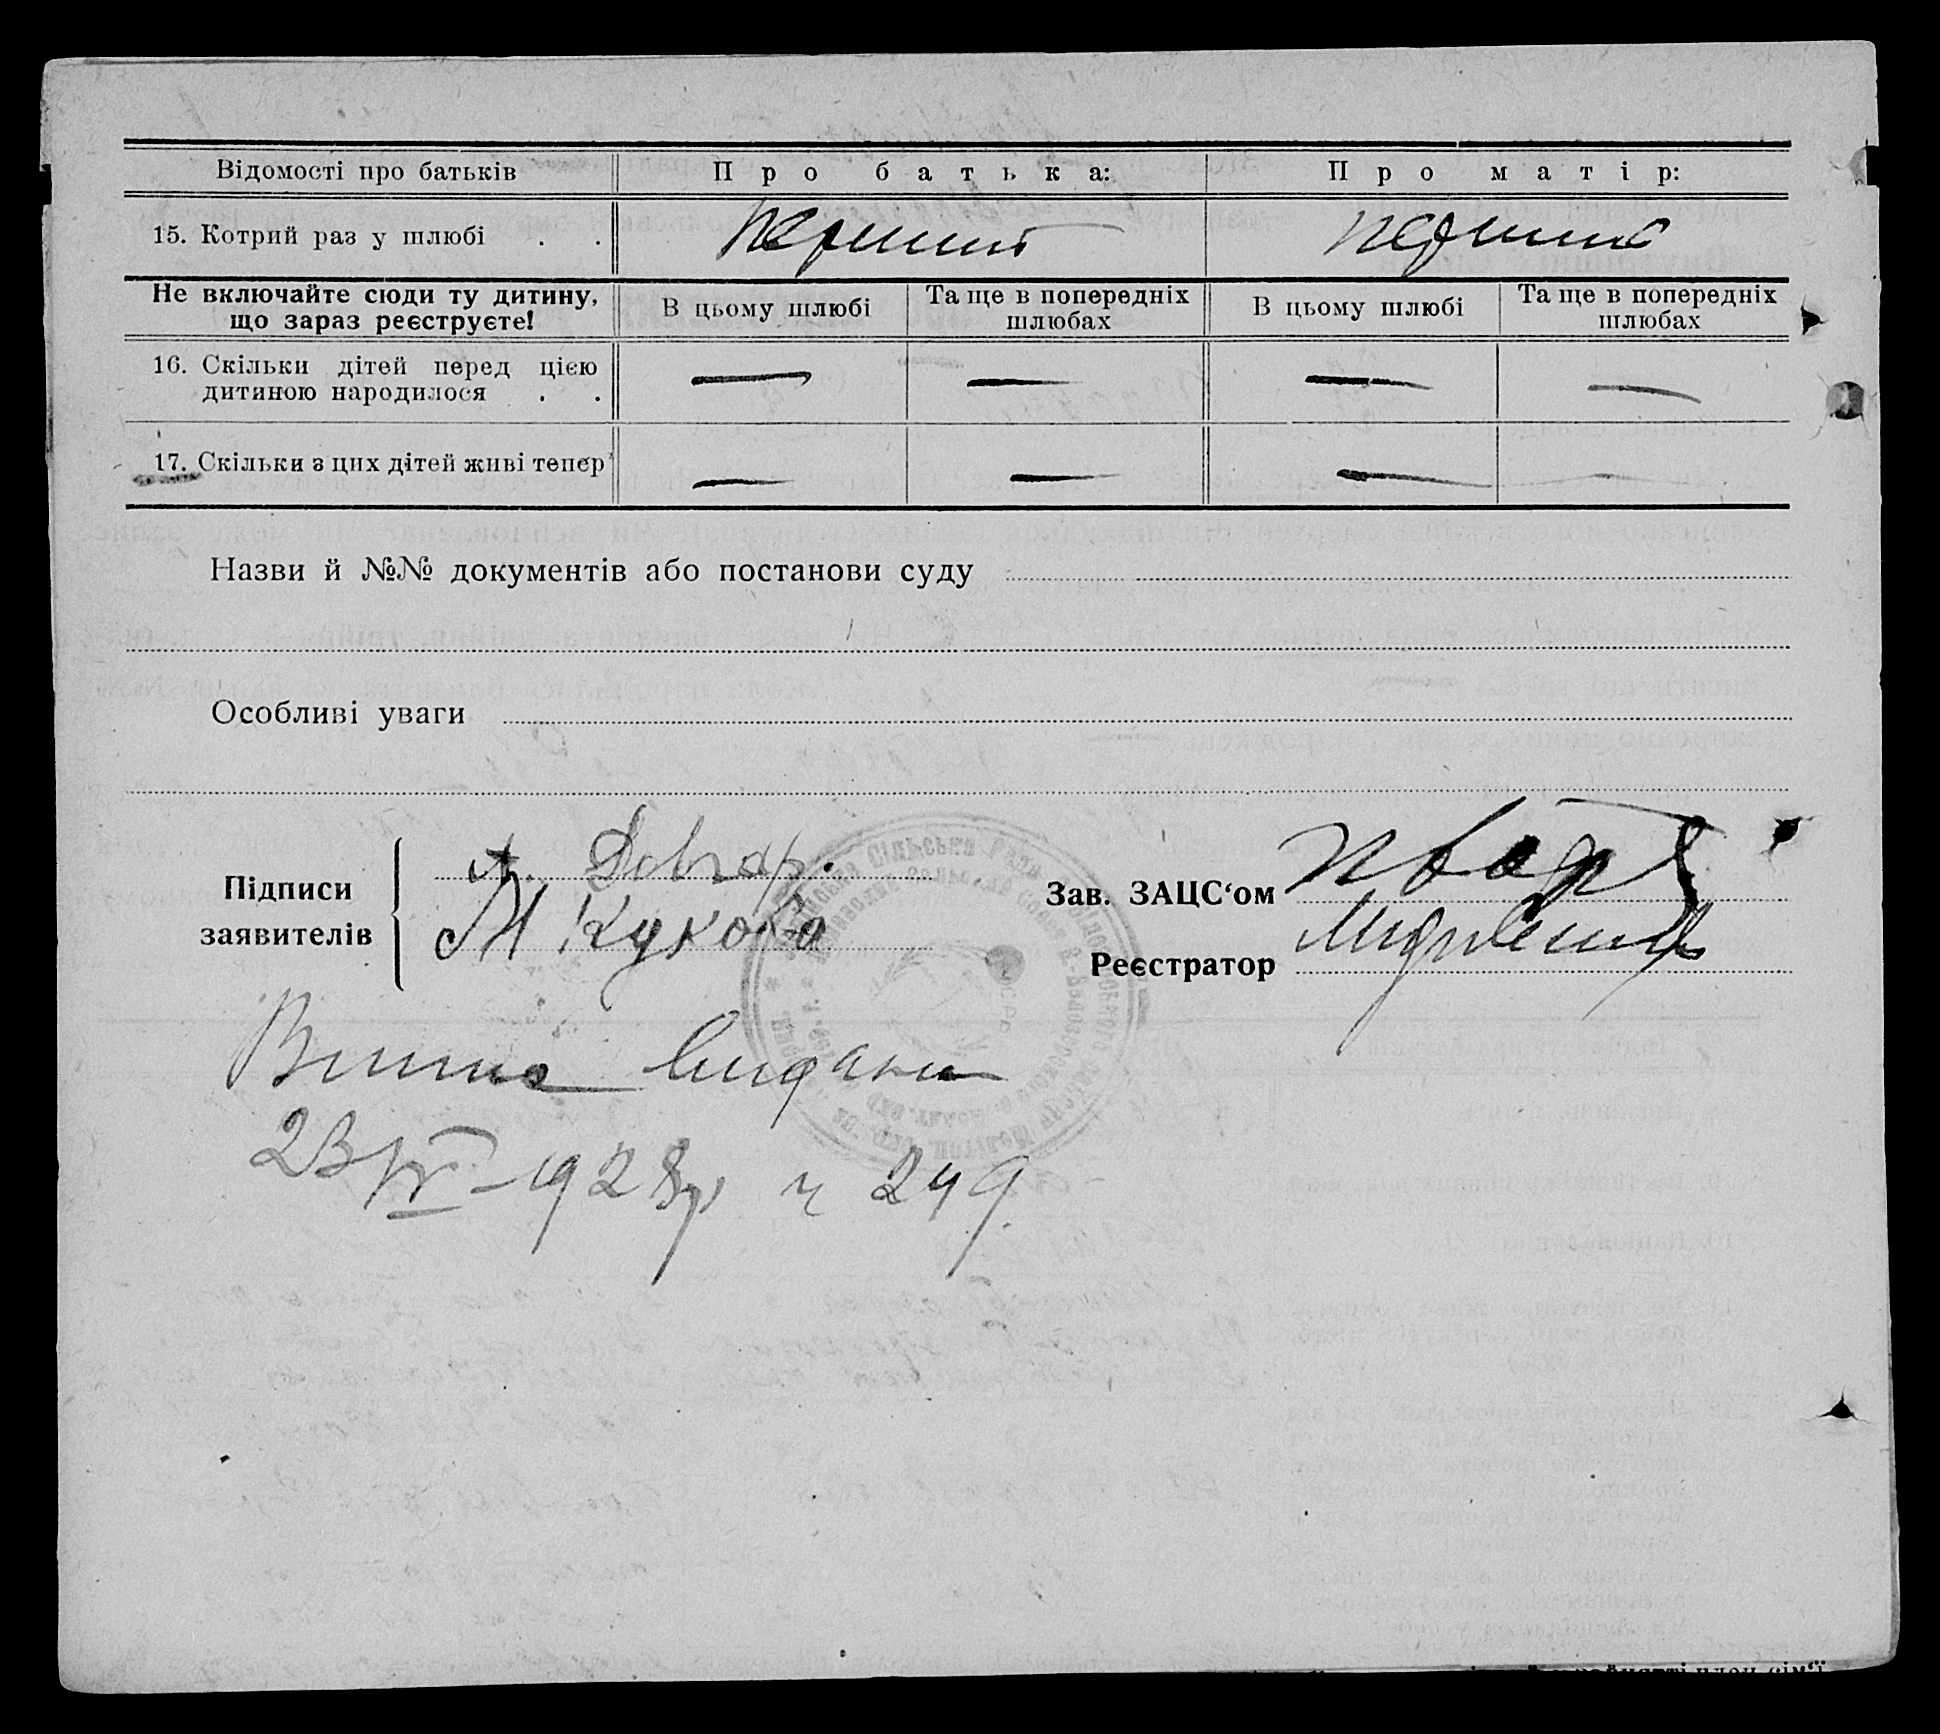 Відомості про батьків	Про батька:	Про матір:
15. Котрий раз у шлюбі . .	перший	перший
Не включайте сюди ту дитину, що зараз реєструєте!	В цьому шлюбі	Та ще в попередніх шлюбах	В цьому шлюбі	Та ще в попередніх шлюбах
16. Скільки дітей перед цією дитиною народилося . .	—	—	—	—
17. Скільки з цих дітей живі тепер	—	—	—	—
Назви й №№ документів або постанови суду
Особливі уваги
Підписи заявителів
М Кукоба
Зав. ЗАЦС‘ом
Реєстратор
Сільська Рада
видани
23/IV-1928р ч 249.